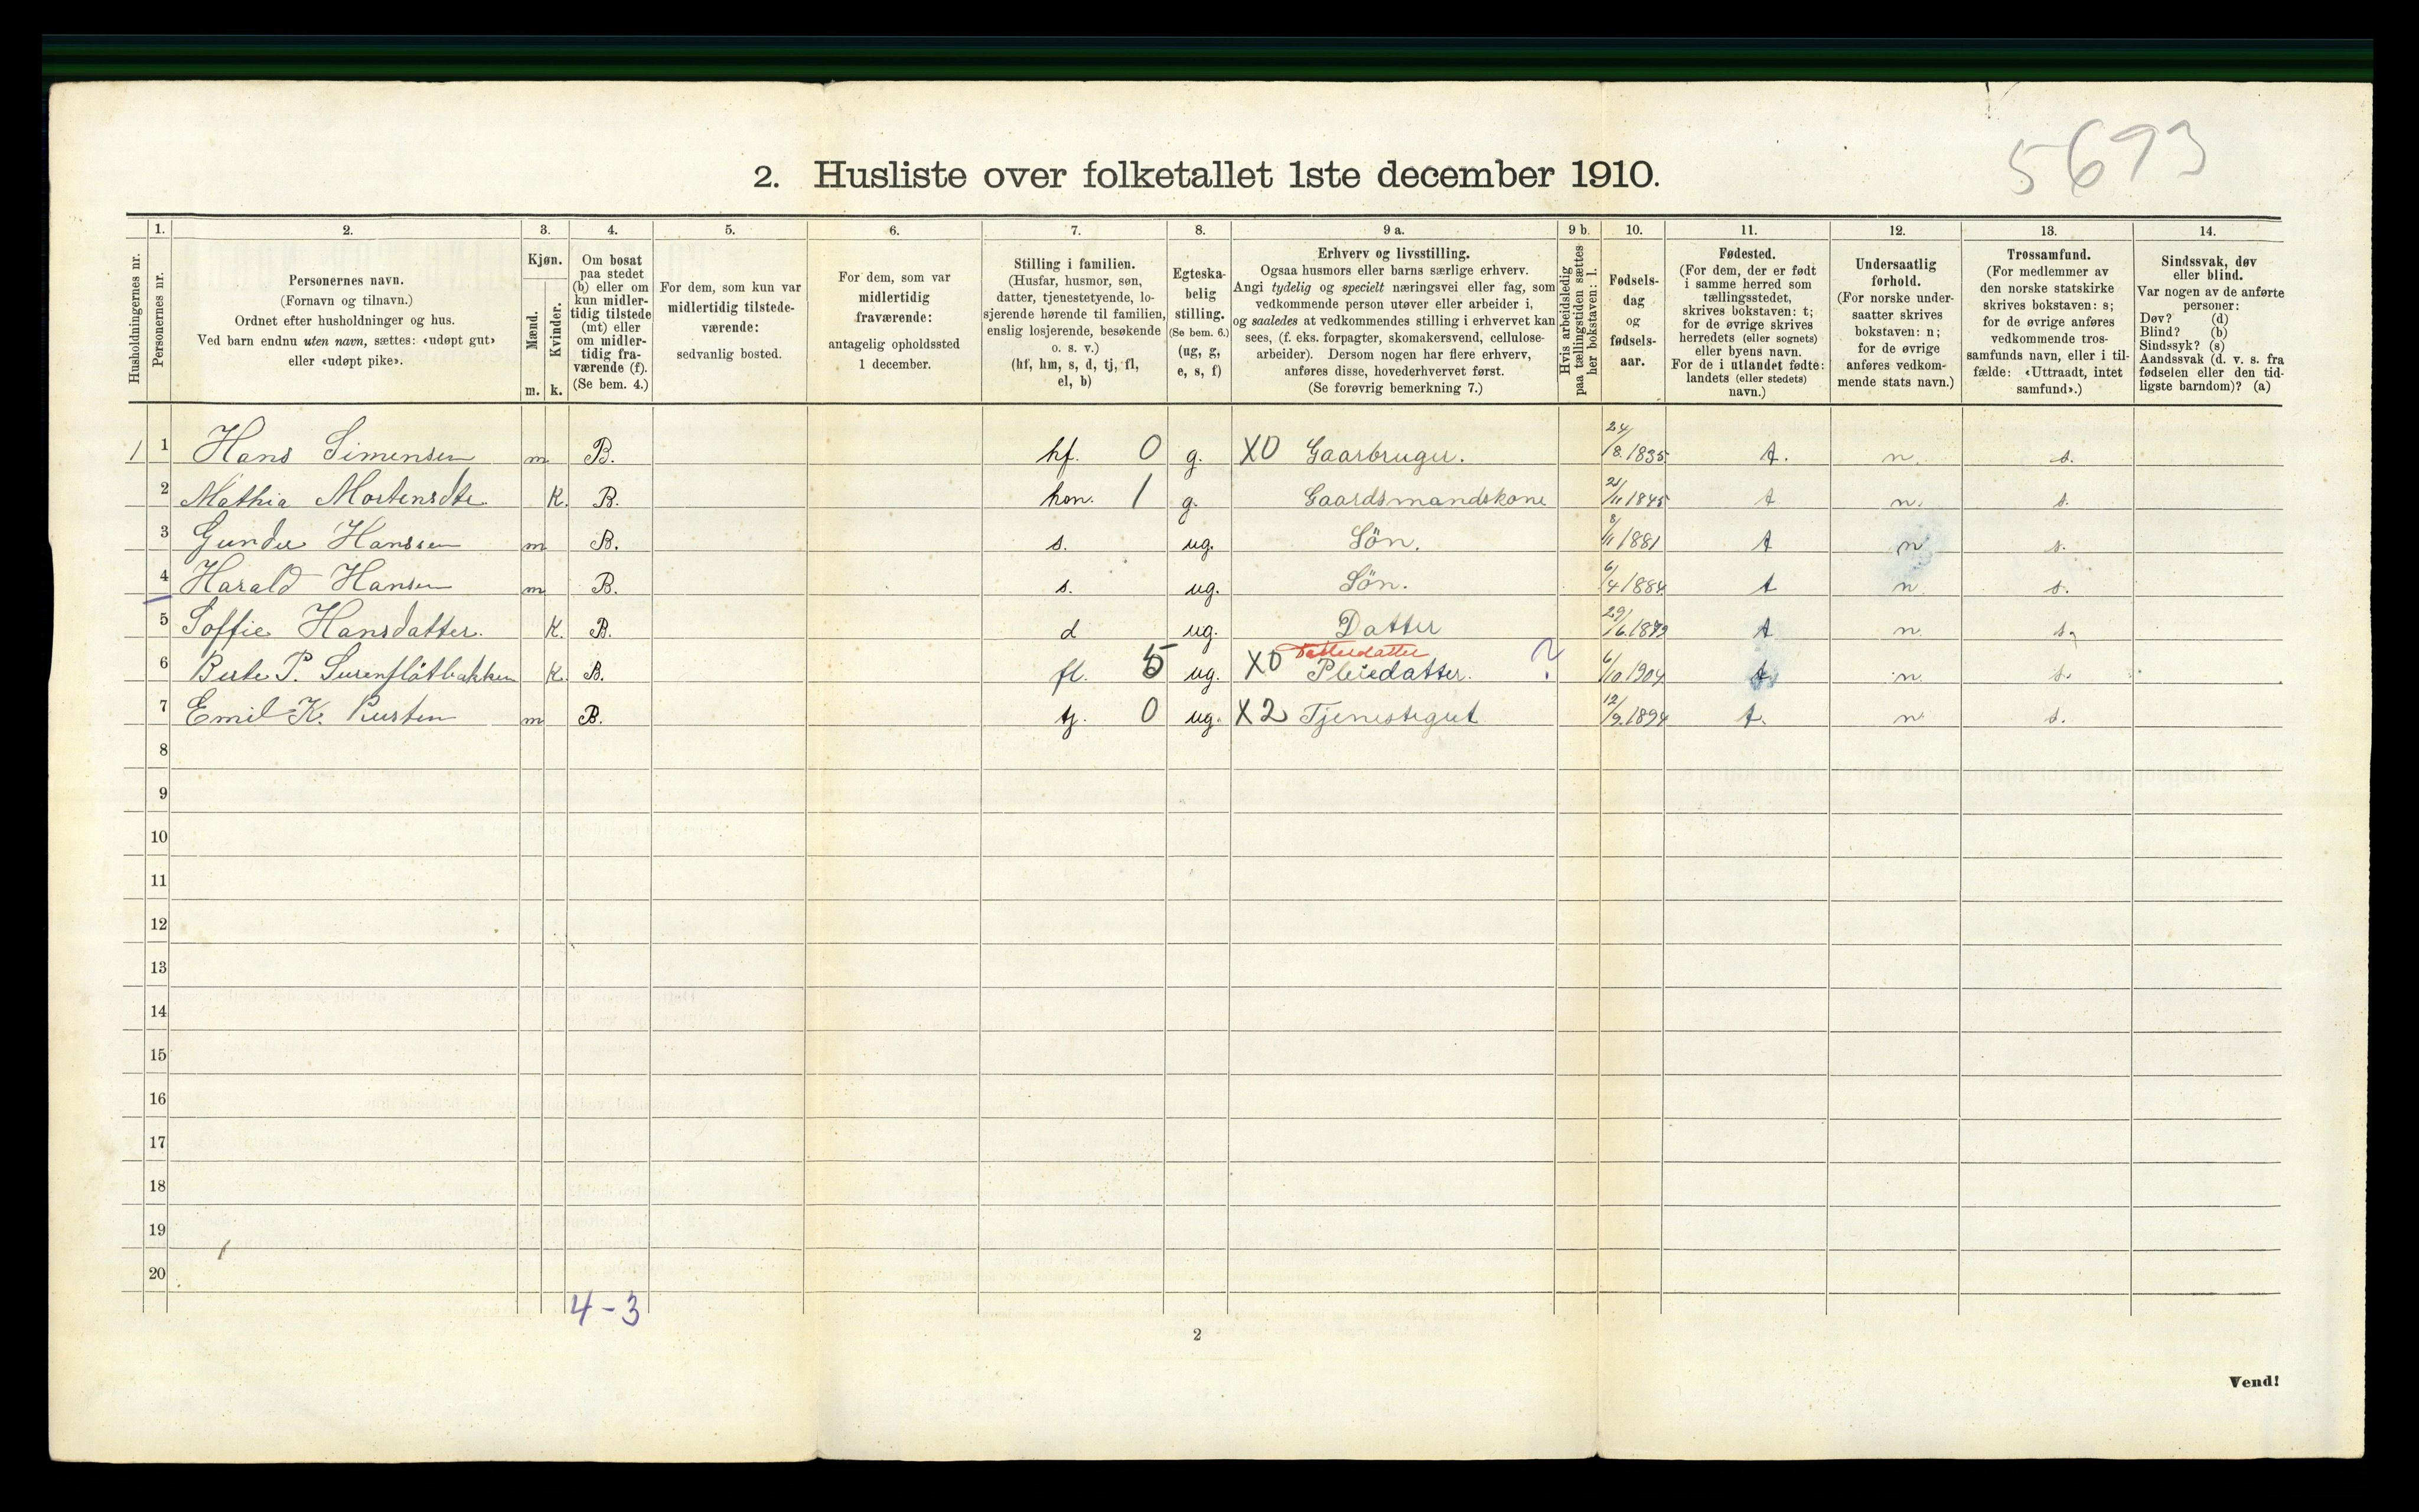 5693
2. Husliste over folketallet 1ste december 1910.
Husholdningernes nr.
1.
Personernes nr.
2.
Personernes navn.
(Fornavn og tilnavn.)
Ordnet efter husholdninger og hus.
Ved barn endnu uten navn, sættes: «udøpt gut»
eller «udøpt pike».
3.
Kjøn.
Mænd.
Kvinder.
m. k.
4.
Om bosat
paa stedet
(b) eller om
kun midler-
tidig tilstede
(mt) eller
om midler-
tidig fra-
værende (f).
(Se bem. 4.)
5.
For dem, som kun var
midlertidig tilstede-
værende:
sedvanlig bosted.
6.
For dem, som var
midlertidig
fraværende:
antagelig opholdssted
1 december.
7.
Stilling i familien.
(Husfar, husmor, søn,
datter, tjenestetyende, lo-
sjerende hørende til familien,
enslig losjerende, besøkende
o. s. v.)
(hf, hm, s, d, tj, fl,
el, b)
8.
Egteska-
belig
stilling.
(Se bem. 6.)
(ug, g,
e, s, f)
9 a.
Erhverv og livsstilling.
Ogsaa husmors eller barns særlige erhverv.
Angi tydelig og specielt næringsvei eller fag, som
vedkommende person utøver eller arbeider i,
og saaledes at vedkommendes stilling i erhvervet kan
sees, (f. eks. forpagter, skomakersvend, cellulose-
arbeider). Dersom nogen har flere erhverv,
anføres disse, hovederhvervet først.
(Se forøvrig bemerkning 7.)
9 b.
Hvis arbeidsledig
paa tællingstiden sættes
her bokstaven: l.
10.
Fødsels-
dag
og
fødsels-
aar.
11.
Fødested.
(For dem, der er født
i samme herred som
tællingsstedet,
skrives bokstaven: t;
for de øvrige skrives
herredets (eller sognets)
eller byens navn.
For de i utlandet fødte:
landets (eller stedets)
navn.)
12.
Undersaatlig
forhold.
(For norske under-
saatter skrives
bokstaven: n;
for de øvrige
anføres vedkom-
mende stats navn.)
13.
Trossamfund.
(For medlemmer av
den norske statskirke
skrives bokstaven: s;
for de øvrige anføres
vedkommende tros-
samfunds navn, eller i til-
fælde: «Uttraadt, intet
samfund».)
14.
Sindssvak, døv
eller blind.
Var nogen av de anførte
personer:
Døv? (d)
Blind? (b)
Sindssyk? (s)
Aandssvak (d. v. s. fra
fødselen eller den tid-
ligste barndom)? (a)
1 1 Hans Simensen m B. hf. 0 g. X0 Gaarbruger. 24/8.1835 t. n. s.
2 Mathia Mortensdtr. K. B. hm. 1 g. Gaardsmandskone 21/11 1845 t n. s.
3 Gunder Hanssen m B. s. ug. Søn. 8/11 1881 t n s.
4 Harald Hansen m B. s. ug. Søn. 6/4 1884 t n s.
5 Soffie Hansdatter. K. B. d ug. Datter 29/6.1879 t n s.
Datterdatter
6 Berte P. Surenflötbakken K. B. fl. 5 ug. X0 Pleiedatter. ? 6/10.1904 t n. s.
7 Emil K. Rusten m B. tj. 0 ug. X2 Tjenestegut 12/9.1894 t. n s.
8
9
10
11
12
13
14
15
16
17
18
19
20
4-3
2
Vend!